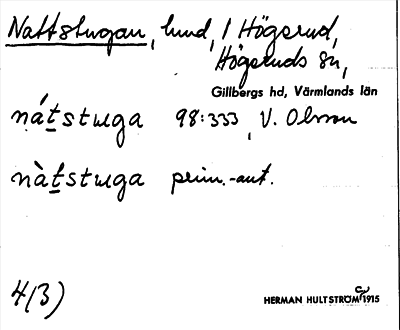 Nattstugan, lund, 1 Högsrud,
Högsruds sn,
Gillbergs hd, Värmlands län
nátstuga 98:333, V. Olsson
nàtstuga prim.-ant.
4(3)
HERMAN HULTSTRÖM 1915